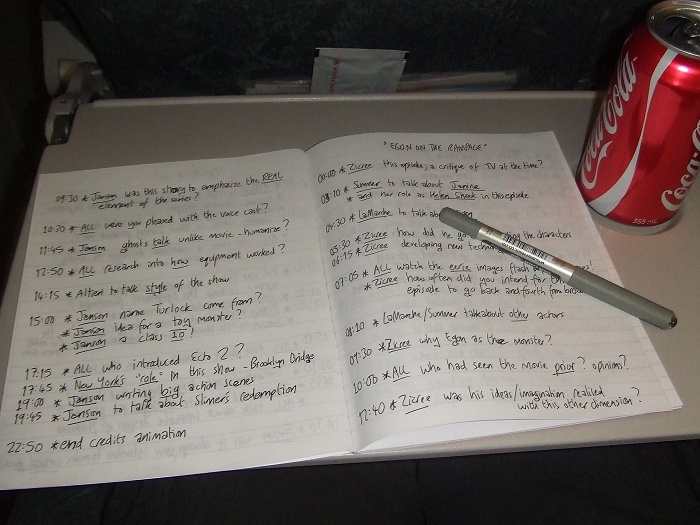 09:30 * Janson was this story to emphasize the REAL
element of the series?
10:20 * ALL were you pleased with the voice cast?
11:45 * Janson ghosts talk unlike movie - humanize?
12:50 * ALL research into how equipment worked?
14:15 * Altieri to talk style of the show
15:00 * Janson name Turlock come from?
* Janson idea for a toy monster?
* Janson a class 10!
17:15 * ALL who introduced Ecto 2?
17:45 * New York's "role" in this show - Brooklyn Bridge
19:00 * Janson writing big action scenes
19:45 * Janson to talk about Slimer's redemption
22:50 * end credits animation
"EGON ON THE RAMPAGE"
00:00 * Zicree this episode; a critique of TV at the time?
03:10 * Summer to talk about Janine
* and her role as Helen Shaek in this episode
04:30 * LaMarche to talk
05:30 * Zicree how did he go the characters
06:15 * Zicree developing new
07:05 * ALL watch the eerie images flash
* Zicree how often did you intend for
episode to go back and fourth from
08:10 * LaMarche/Summer talk about other actors
09:30 * Zicree why Egon as the monster?
10:00 * ALL who had seen the movie prior? opinions?
12:40 * Zicree was his ideas/imagination realised
with this other dimension?
Coca-Cola
Coca-Co
355 mL